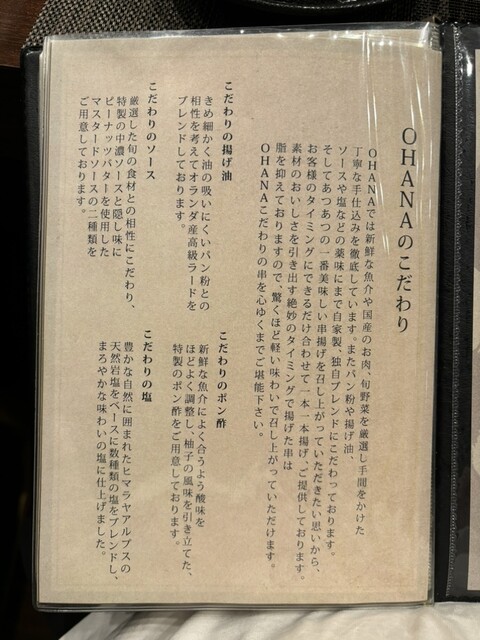 OHANAのこだわり
OHANAでは新鮮な魚介や国産のお肉、旬野菜を厳選し手間をかけた
丁寧な手仕込みを徹底しています。またパン粉や揚げ油、
ソースや塩などの薬味にまで自家製、独自ブレンドにこだわっております。
そしてあつあつの一番美味しい串揚げを召し上がっていただきたい思いから、
お客様のタイミングにできるだけ合わせて一本一本揚げ、ご提供しております。
素材のおいしさを引き出す絶妙のタイミングで揚げた串は
脂を抑えておりますので、驚くほど軽い味わいで召し上がっていただけます。
OHANAこだわりの串を心ゆくまでご堪能下さい。
こだわりの揚げ油
きめ細かく油の吸いにくいパン粉との
相性を考えてオランダ産高級ラードを
ブレンドしております。
こだわりのポン酢
新鮮な魚介によく合うよう酸味を
ほどよく調整し、柚子の風味を引き立てた、
特製のポン酢をご用意しております。
こだわりのソース
厳選した旬の食材との相性にこだわり、
特製の中濃ソースと隠し味に
ピーナッツバターを使用した
マスタードソースの二種類を
ご用意しております。
こだわりの塩
豊かな自然に囲まれたヒマラヤアルプスの
天然岩塩をベースに数種類の塩をブレンドし、
まろやかな味わいの塩に仕上げました。